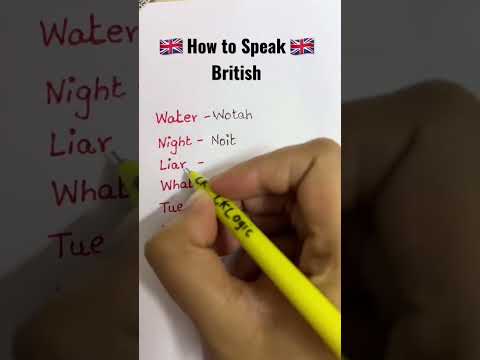 🇬🇧 How to Speak 🇬🇧
British
Water - Wotah
Night - Noit
Liar -
What
Tue
CKLogic
Water
Night
Liar
What
Tue